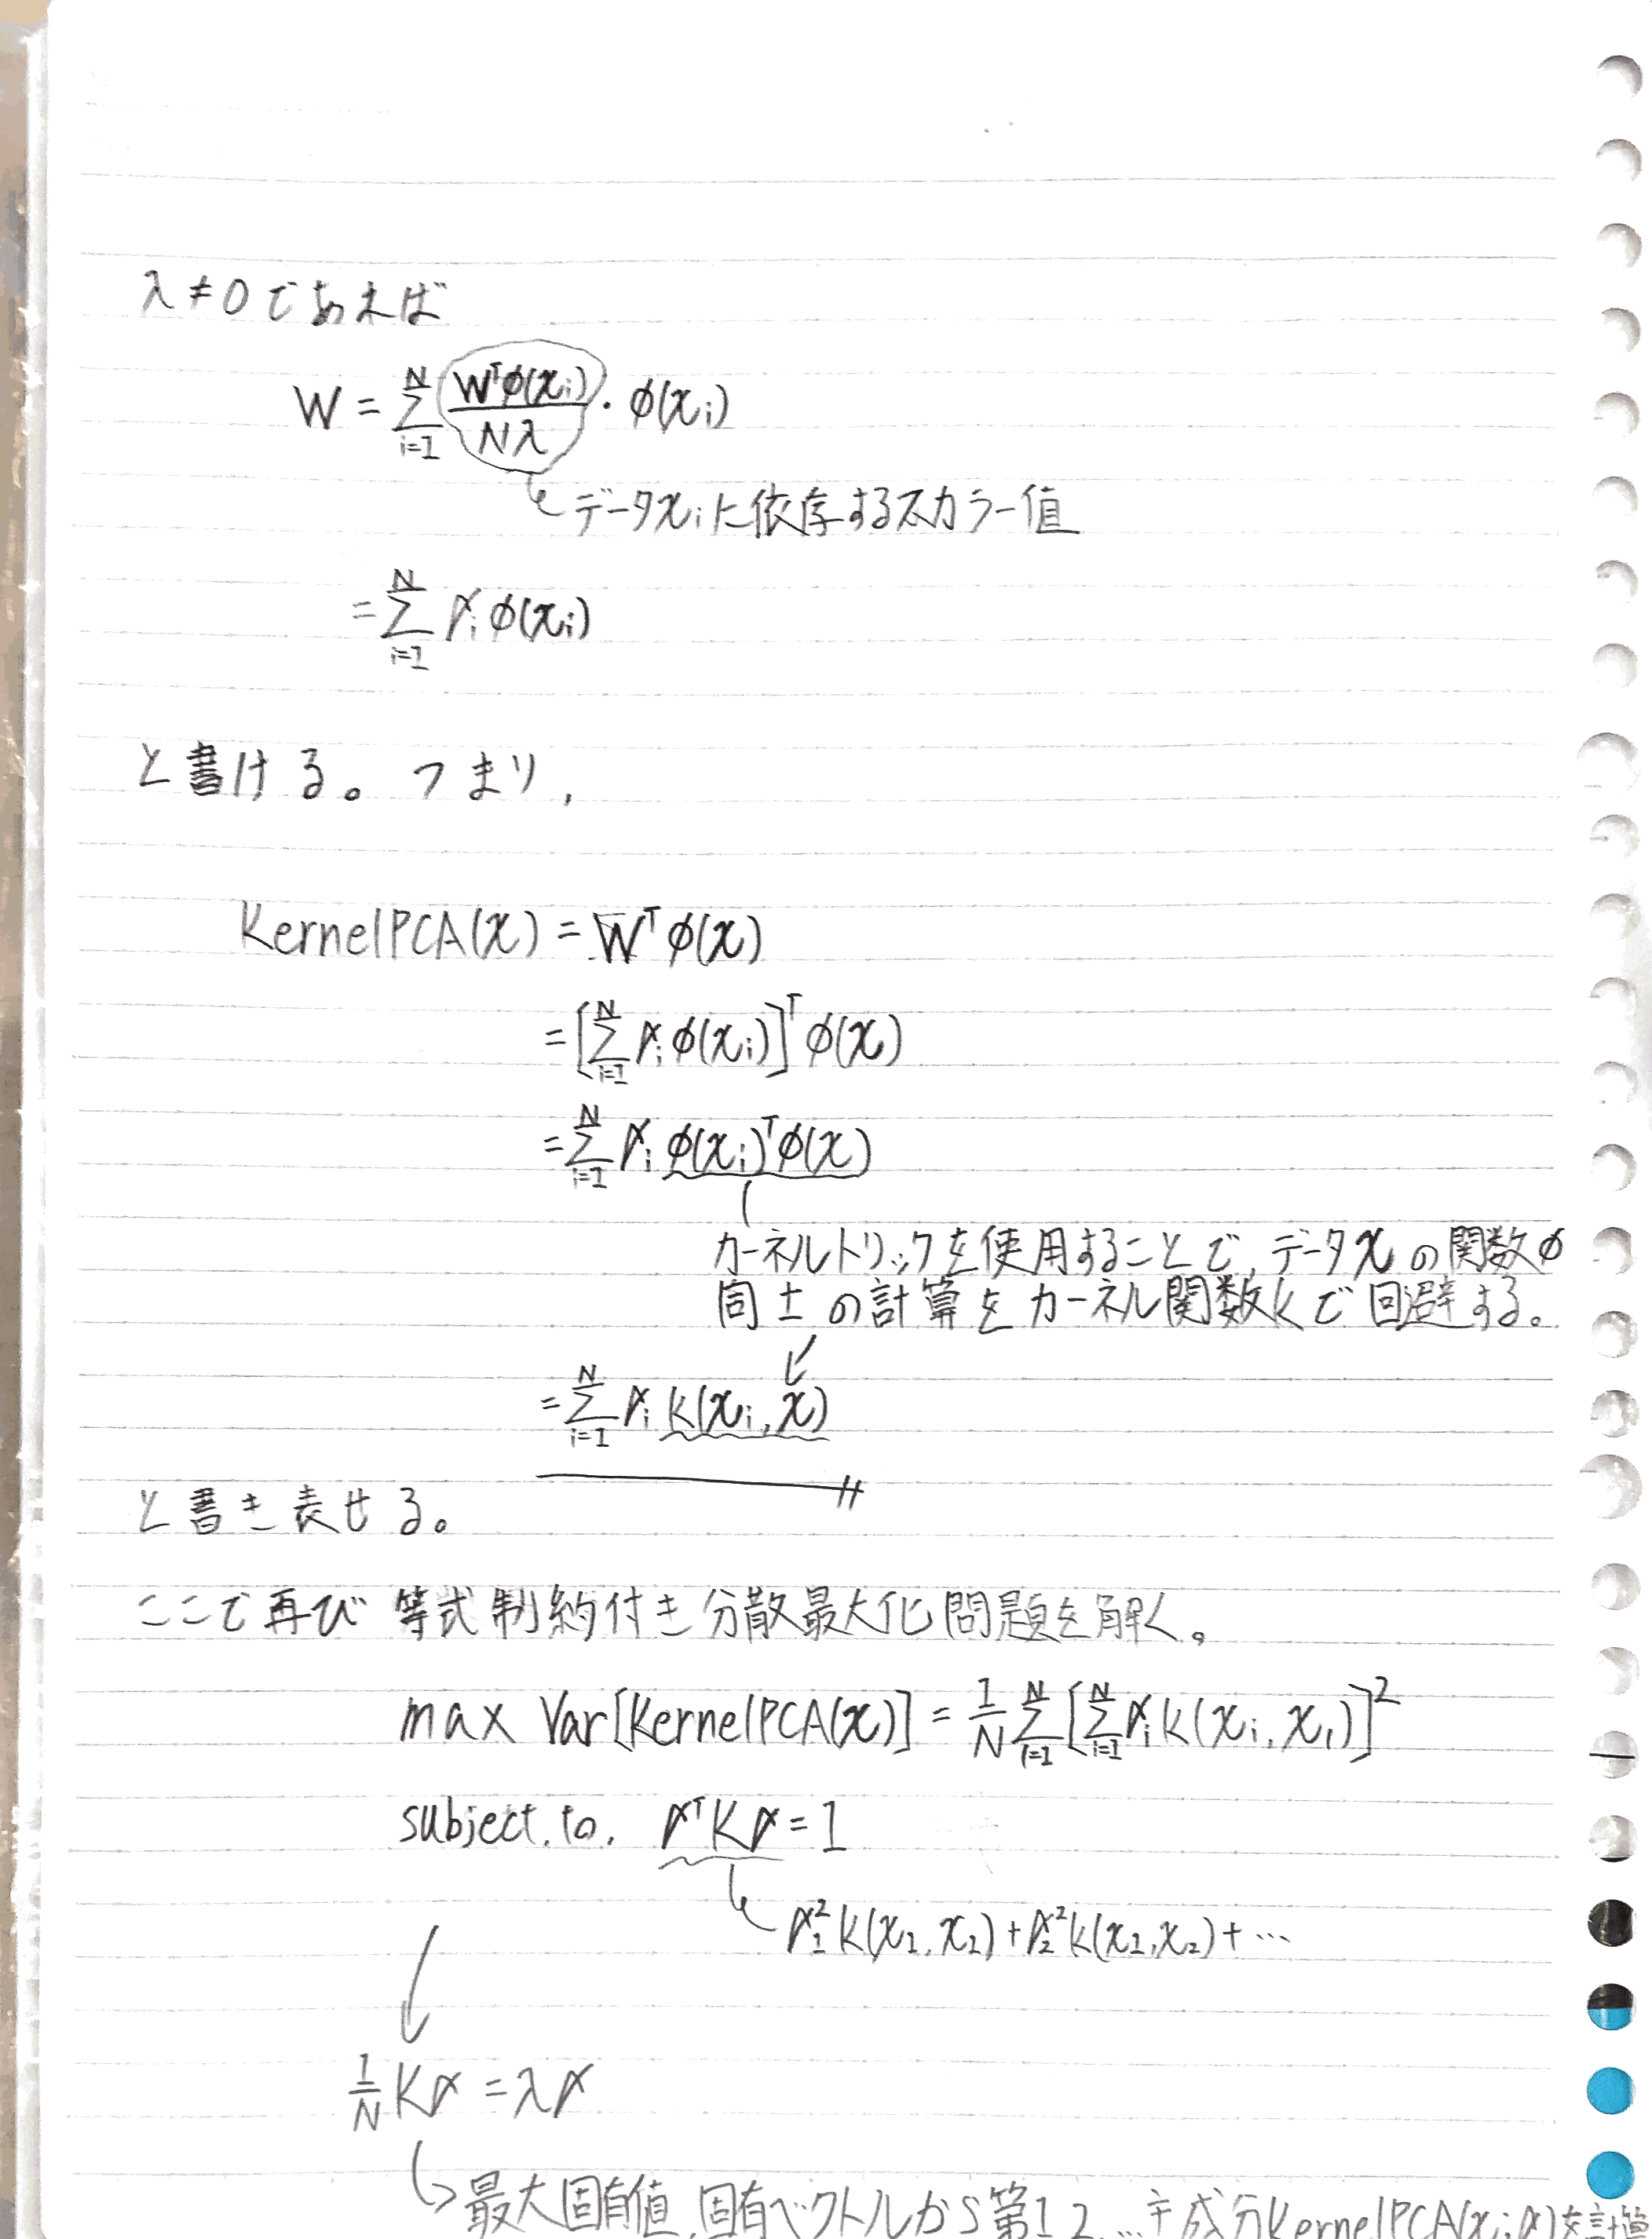 λ≠0であれば
W = Σ_{i=1}^{N} (Wᵀφ(x_i) / Nλ)・φ(x_i)
データx_iに依存するスカラー値
= Σ_{i=1}^{N} α_i φ(x_i)
と書ける。つまり,
KernelPCA(x) = Wᵀφ(x)
= [Σ_{i=1}^{N} α_i φ(x_i)]ᵀ φ(x)
= Σ_{i=1}^{N} α_i φ(x_i)ᵀφ(x)
カーネルトリックを使用することで、データxの関数φ
同士の計算をカーネル関数kで回避する。
= Σ_{i=1}^{N} α_i k(x_i, x)
と書き表せる。
ここで再び等式制約付き分散最大化問題を解く。
max Var[KernelPCA(x)] = 1/N Σ_{l=1}^{N} [Σ_{i=1}^{N} α_i k(x_i, x_l)]²
subject.to. αᵀKα = 1
α_1² k(x_1, x_1) + α_2² k(x_2, x_2) + …
1/N Kα = λα
最大固有値、固有ベクトルから第1 2 …主成分KernelPCA(x;α)を計算